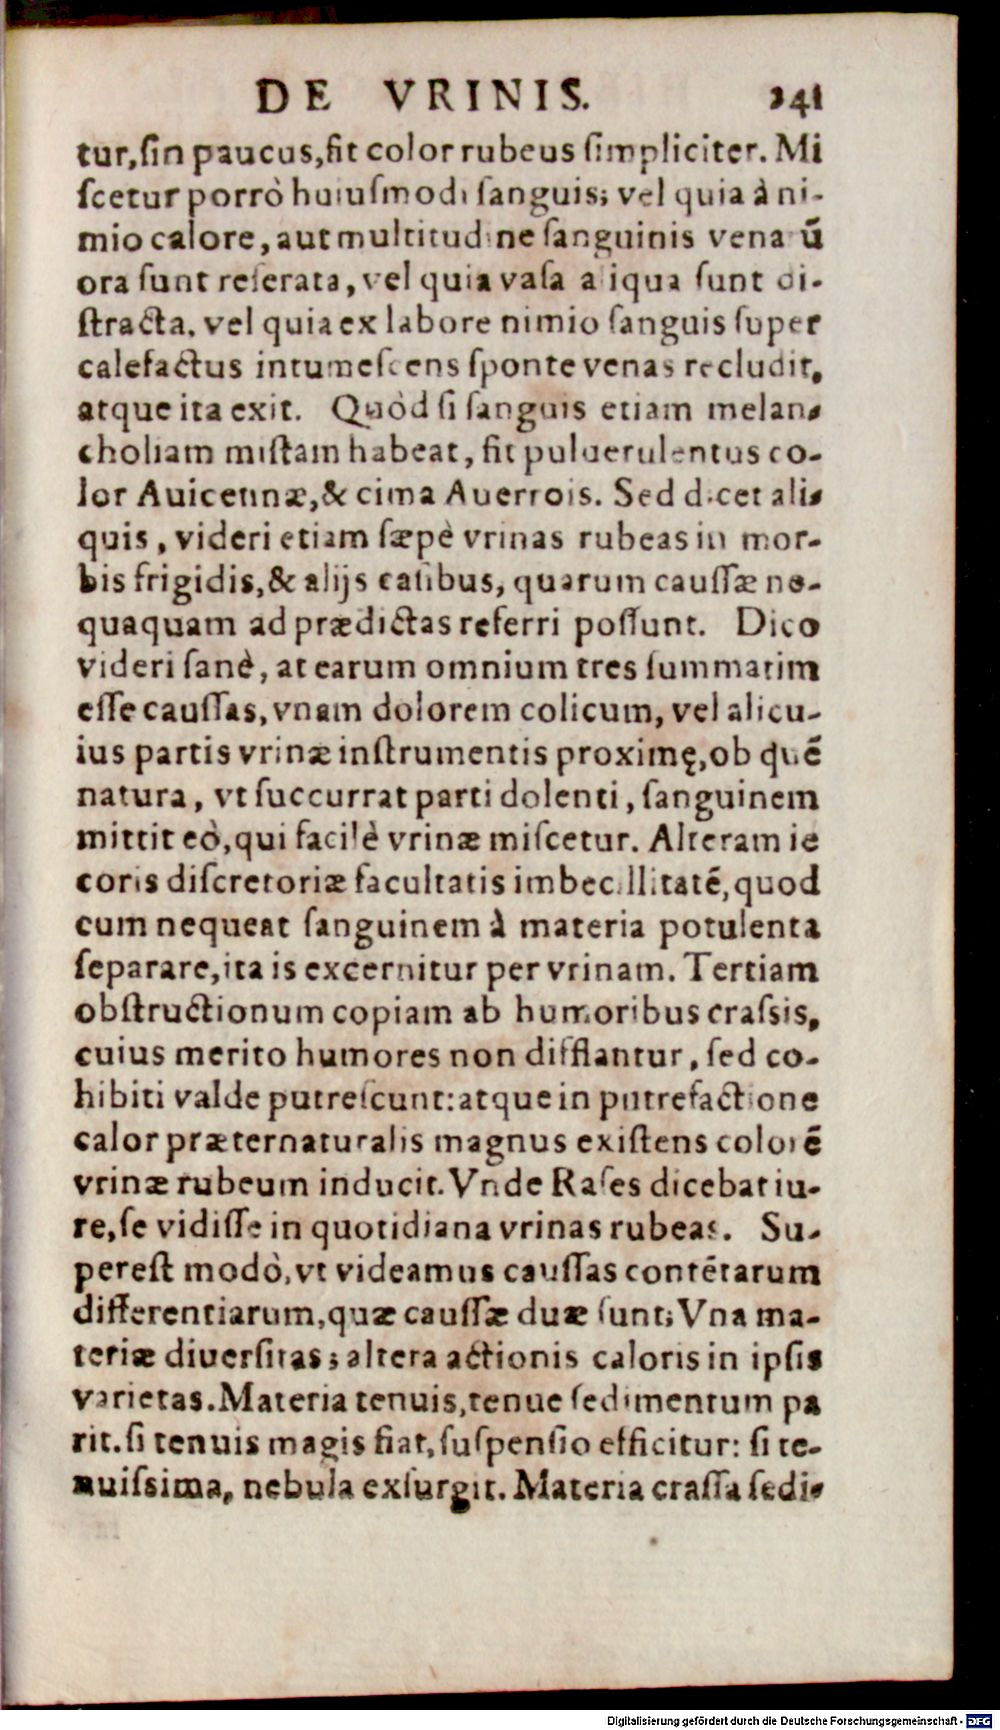 DE VRINIS. 241
tur, ſin paucus, fit color rubeus ſimpliciter. Mi
ſcetur porrò huiuſmodi ſanguis; vel quia à ni-
mio calore, aut multitudine ſanguinis venarũ
ora ſunt reſerata, vel quia vaſa aliqua ſunt di-
ſtracta, vel quia ex labore nimio ſanguis ſuper
calefactus intumeſcens ſponte venas recludit,
atque ita exit. Quòd ſi ſanguis etiam melan-
choliam miſtam habeat, fit puluerulentus co-
lor Auicennæ, & cima Auerrois. Sed dicet ali-
quis, videri etiam ſæpè vrinas rubeas in mor-
bis frigidis, & alijs caſibus, quarum cauſſæ ne-
quaquam ad prædictas referri poſſunt. Dico
videri ſanè, at earum omnium tres ſummatim
eſſe cauſſas, vnam dolorem colicum, vel alicu-
ius partis vrinæ inſtrumentis proximę, ob quẽ
natura, vt ſuccurrat parti dolenti, ſanguinem
mittit eò, qui facilè vrinæ miſcetur. Alteram ie
coris diſcretoriæ facultatis imbecillitatẽ, quod
cum nequeat ſanguinem à materia potulenta
ſeparare, ita is excernitur per vrinam. Tertiam
obſtructionum copiam ab humoribus craſsis,
cuius merito humores non difflantur, ſed co-
hibiti valde putreſcunt: atque in putrefactione
calor præternaturalis magnus exiſtens colorẽ
vrinæ rubeum inducit. Vnde Raſes dicebat iu-
re, ſe vidiſſe in quotidiana vrinas rubeas. Su-
pereſt modò, vt videamus cauſſas contẽtarum
differentiarum, quæ cauſſæ duæ ſunt; Vna ma-
teriæ diuerſitas; altera actionis caloris in ipſis
varietas. Materia tenuis, tenue ſedimentum pa
rit. ſi tenuis magis fiat, ſuſpenſio efficitur: ſi te-
nuiſsima, nebula exſurgit. Materia craſſa ſedi-
Digitalisierung gefördert durch die Deutsche Forschungsgemeinschaft - DFG